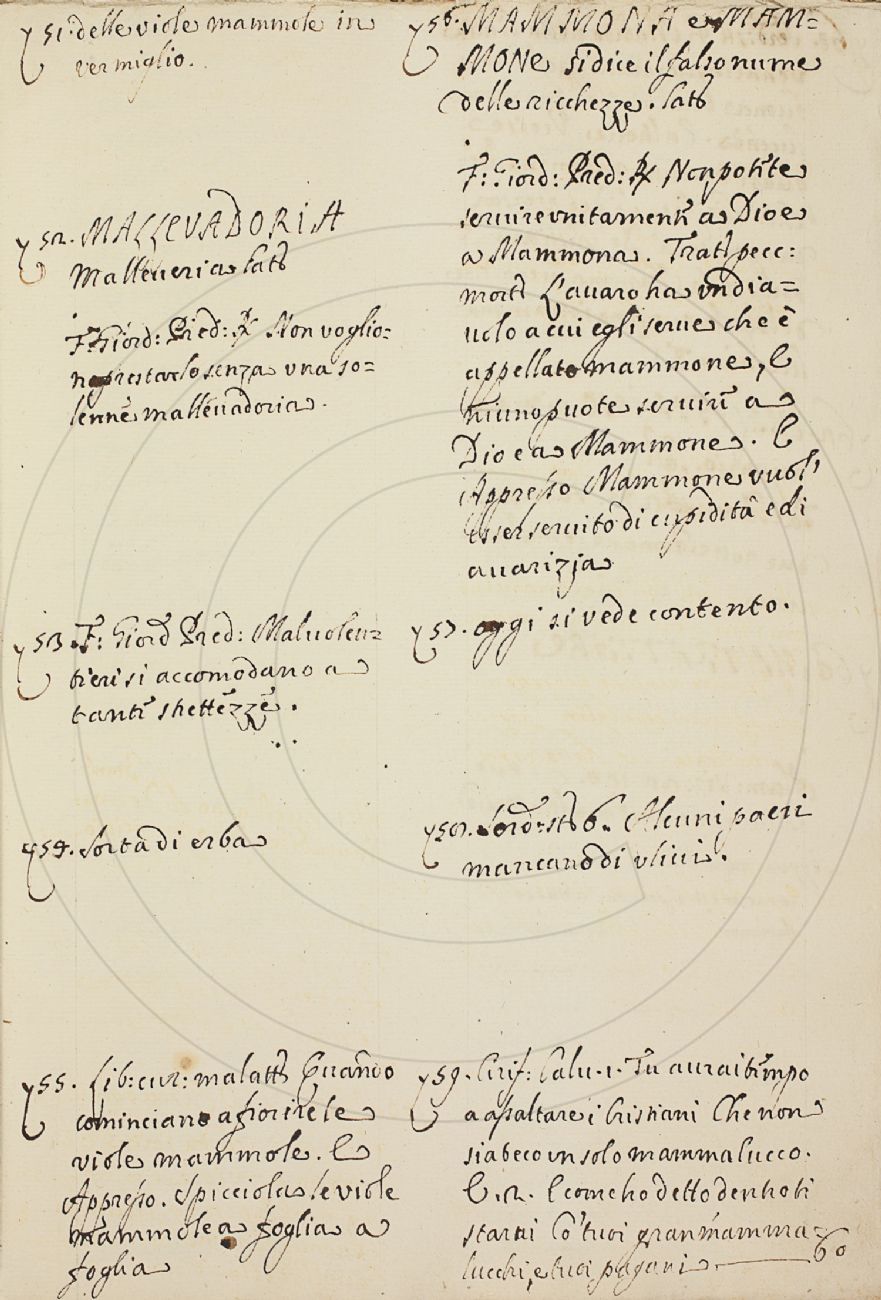 51. delle viole mammole in
vermiglio.
52. MALLEVADORIA
Malleveria Lat.
F. Giord: Pred: R Non voglio=
no prestarlo senza una so=
lenne mallevadoria.
53. F. Giord Pred: Malvolen=
tieri si accomodano a
tante strettezze.
54. Sorta di erba
55. Lib: cur: malatt. Quando
cominciano a fiorire le
viole mammole. E
Appresso. Spicciola le viole
mammole a foglia a
foglia
56. MAMMONA e MAM=
MONE si dice il falso nume
delle ricchezze. Lat.
F: Giord: Pred: R Nonpotete
servire unitamente a Dio e
a Mammona. Tratt. pecc:
mort. L'avaro ha un dia=
volo a cui egli serve che è
appellato mammone, E
niuno puote servire a
Dio e a Mammone. E
Appresso Mammone vuol
esser servito di cupidità e di
avarizja
57. oggi si vede contento.
58. Alcuni paeri
mancano di
59. Cirif: Calv. 1. Tu avrai tempo
a assaltare i Cristiani Che non
sia beco un solo mammalucco.
E. 2. E come ho detto dentro ti
starai Cò tuoi gran mamma=
lucchi, e tuoi pagani. 60